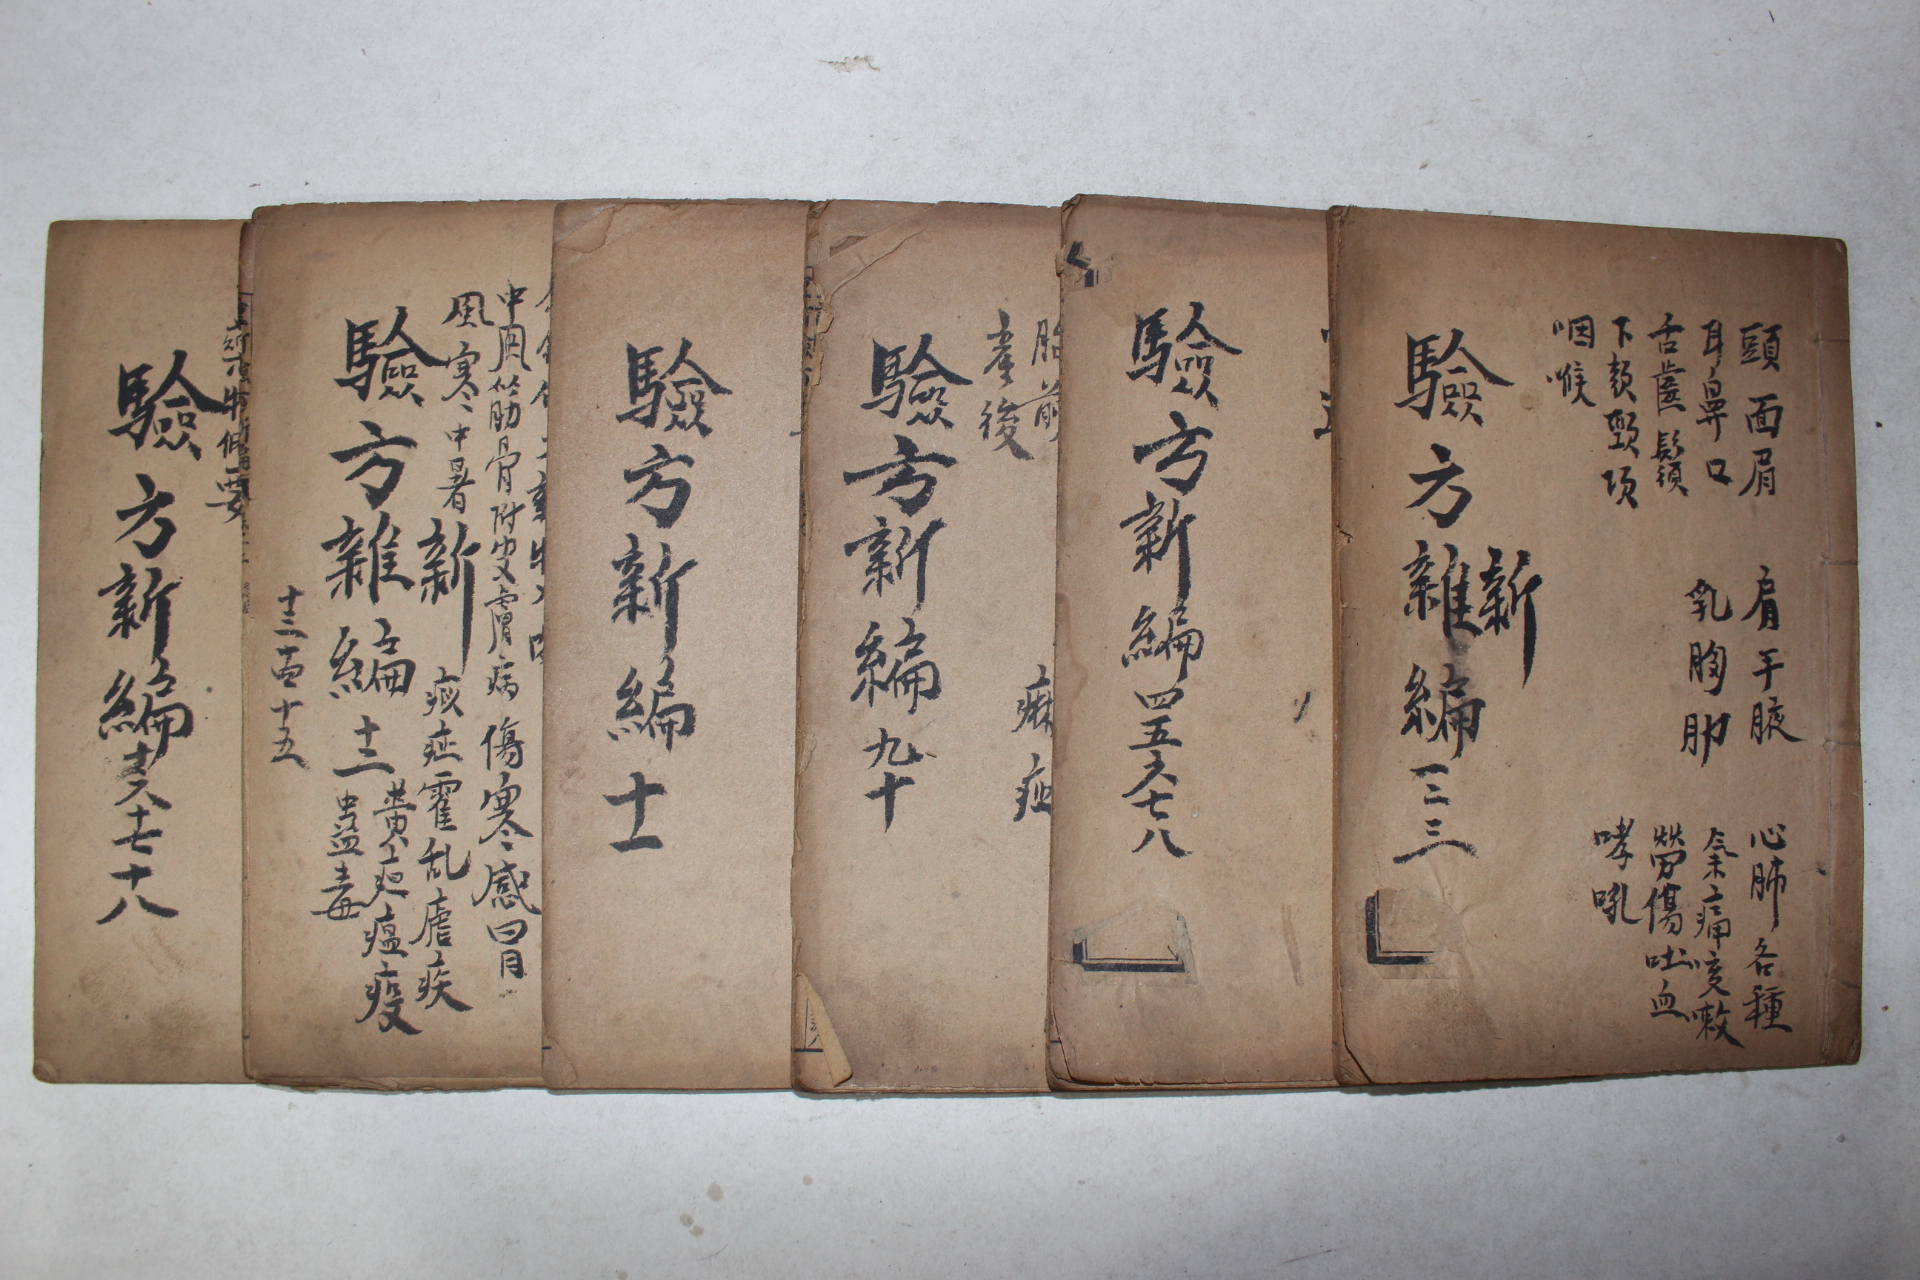 頭面眉
耳鼻口
舌齒鬚
下頦頸項
咽喉
肩手腋
乳胸肋
心肺各種
氣痛咳嗽
勞傷吐血
哮吼
新
驗方雜編一二三
驗方新編四五六七八
胎前
產後
痳痘
驗方新編九十
驗方新編十一
中風筋骨附皮膚病傷寒感冒
風寒中暑
新
痧症霍乱瘧疾
黃疸瘟疫
蠱毒
驗方雜編十二
十三十四十五
驗方新編十六十七十八